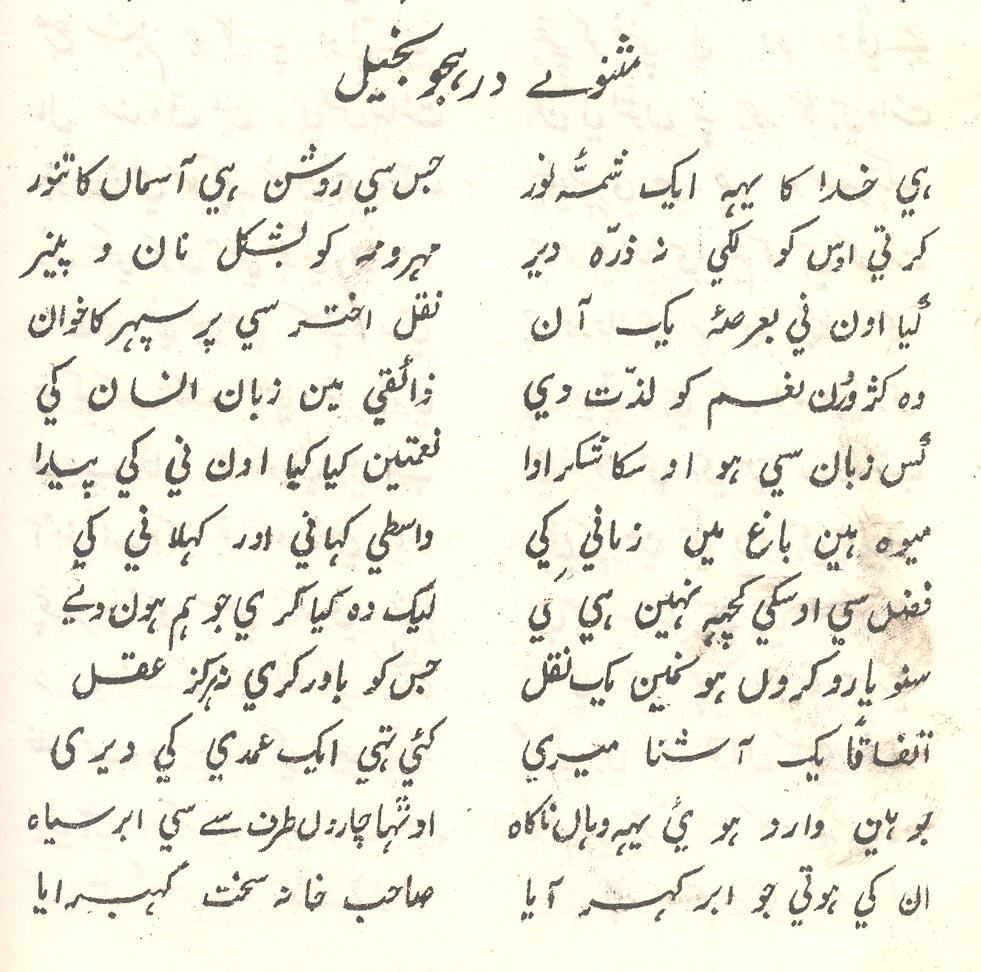 مثنوے در ہجو بخیل
ہي خدا کا یہہ ایک شمّہ نور جس سي روشن ہي آسماں کا تنور
کرتي اوس کو لگي نہ ذرّہ دیر مہرومہ کو بشکل نان و پنیر
کیا اون ني بعرصۂ یک آن نقل اختر سي پر سپہر کا خوان
وہ کڑوڑن نعم کو لذّت دي ذائقي مین زبان انسان کي
کس زبان سي ہو اوسکا شکر ادا نعمتین کیا کیا اون ني کي پیدا
میوہ ہین باغ میں زماني کي واسطي کہاني اور کہلاني کي
فضل سي اوسکي کچہہ نہین ہي لیک وہ کیا کري جو ہم ہون دنے
سنو یارو کروں ہو نمین یک نقل جس کو باور کري نہ ہرگز عقل
اتفاقاً یک آشنا میري گئي تہي ایک عمدي کي دیری
جو ہین وارد ہوئي یہہ وہاں ناگاہ اوٹہا چاروں طرف سے سي ابر سیاہ
ان کي ہوتي جو ابر گہر آیا صاحب خانہ سخت گہبرایا